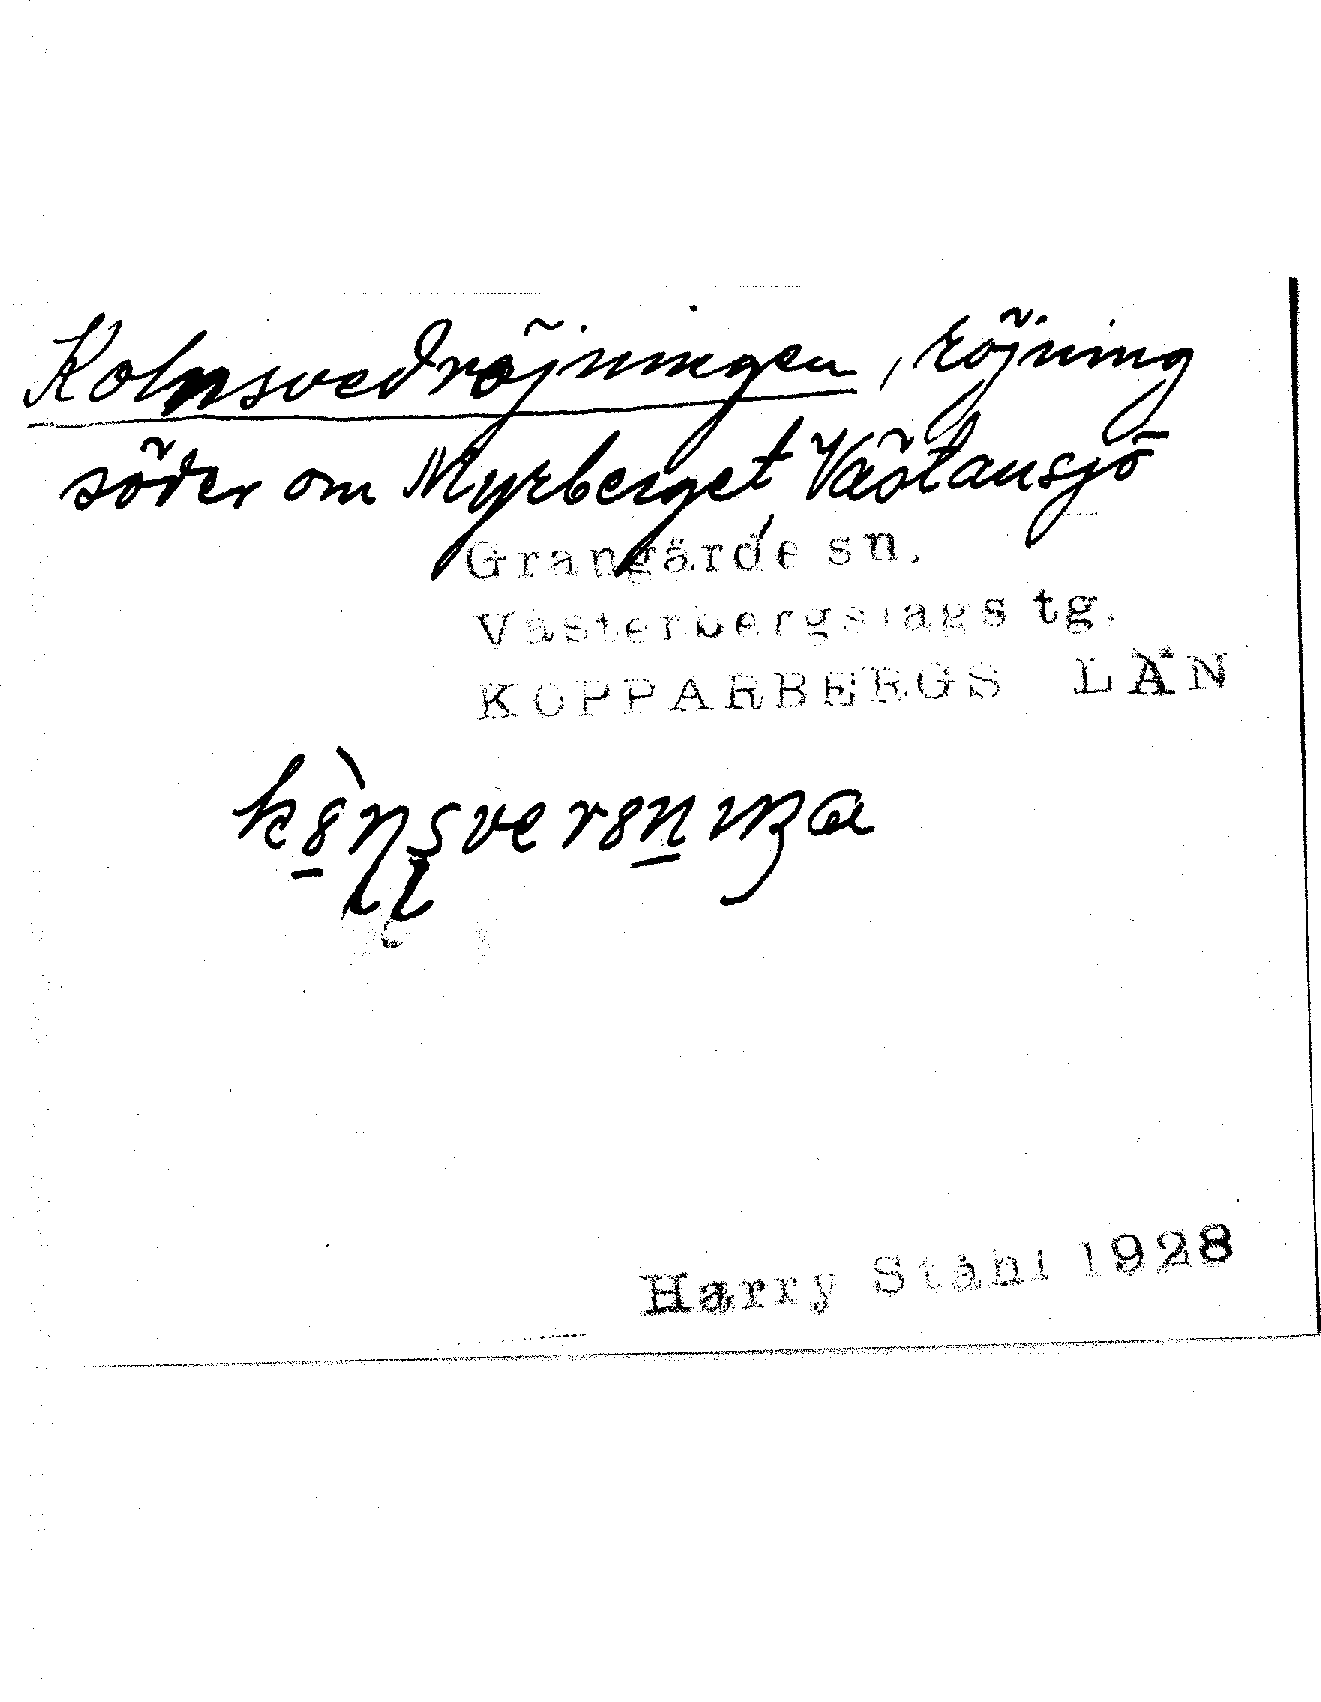 Kolnsvedröjningen, röjning
söder om Myrberget, Västansjö
Grangärde sn.
Västerbergslags tg.
KOPPARBERGS LÄN
Harry Ståhl 1928